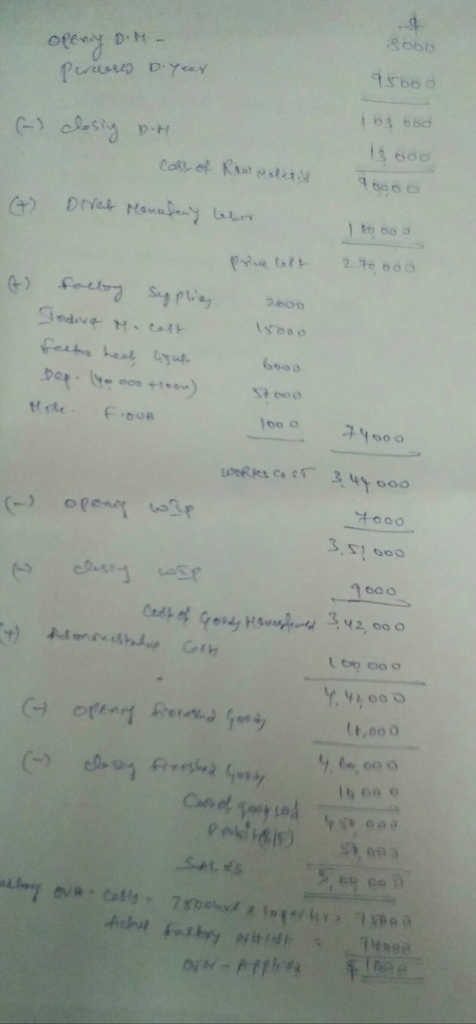 $
opening D.M - 8000
purchased D. year 95000
103 000
(-) closing D.M 13,000
Cost of Raw Material 90,000
(+) Direct Manufacturing labor 180,000
prime cost 270,000
(+) factory Supplies 2000
Indirect M. cost 15000
factory heat, light 6000
Dep. 50000
Misc. F.OVH 1000 74000
WORKS COST 3,44,000
(-) opening WIP 7000
3,51,000
closing WIP 9000
Cost of Goods Manufactured 3,42,000
(+) Administrative Costs 100,000
4,42,000
(-) opening finished Goods 18,000
4,60,000
(-) closing finished Goods 10,000
Cost of goods sold 450,000
Profit 50,000
SALES 5,00,000
factory OVH - Costs = 75000
Actual factory = 74000
over - Applied $ 1000